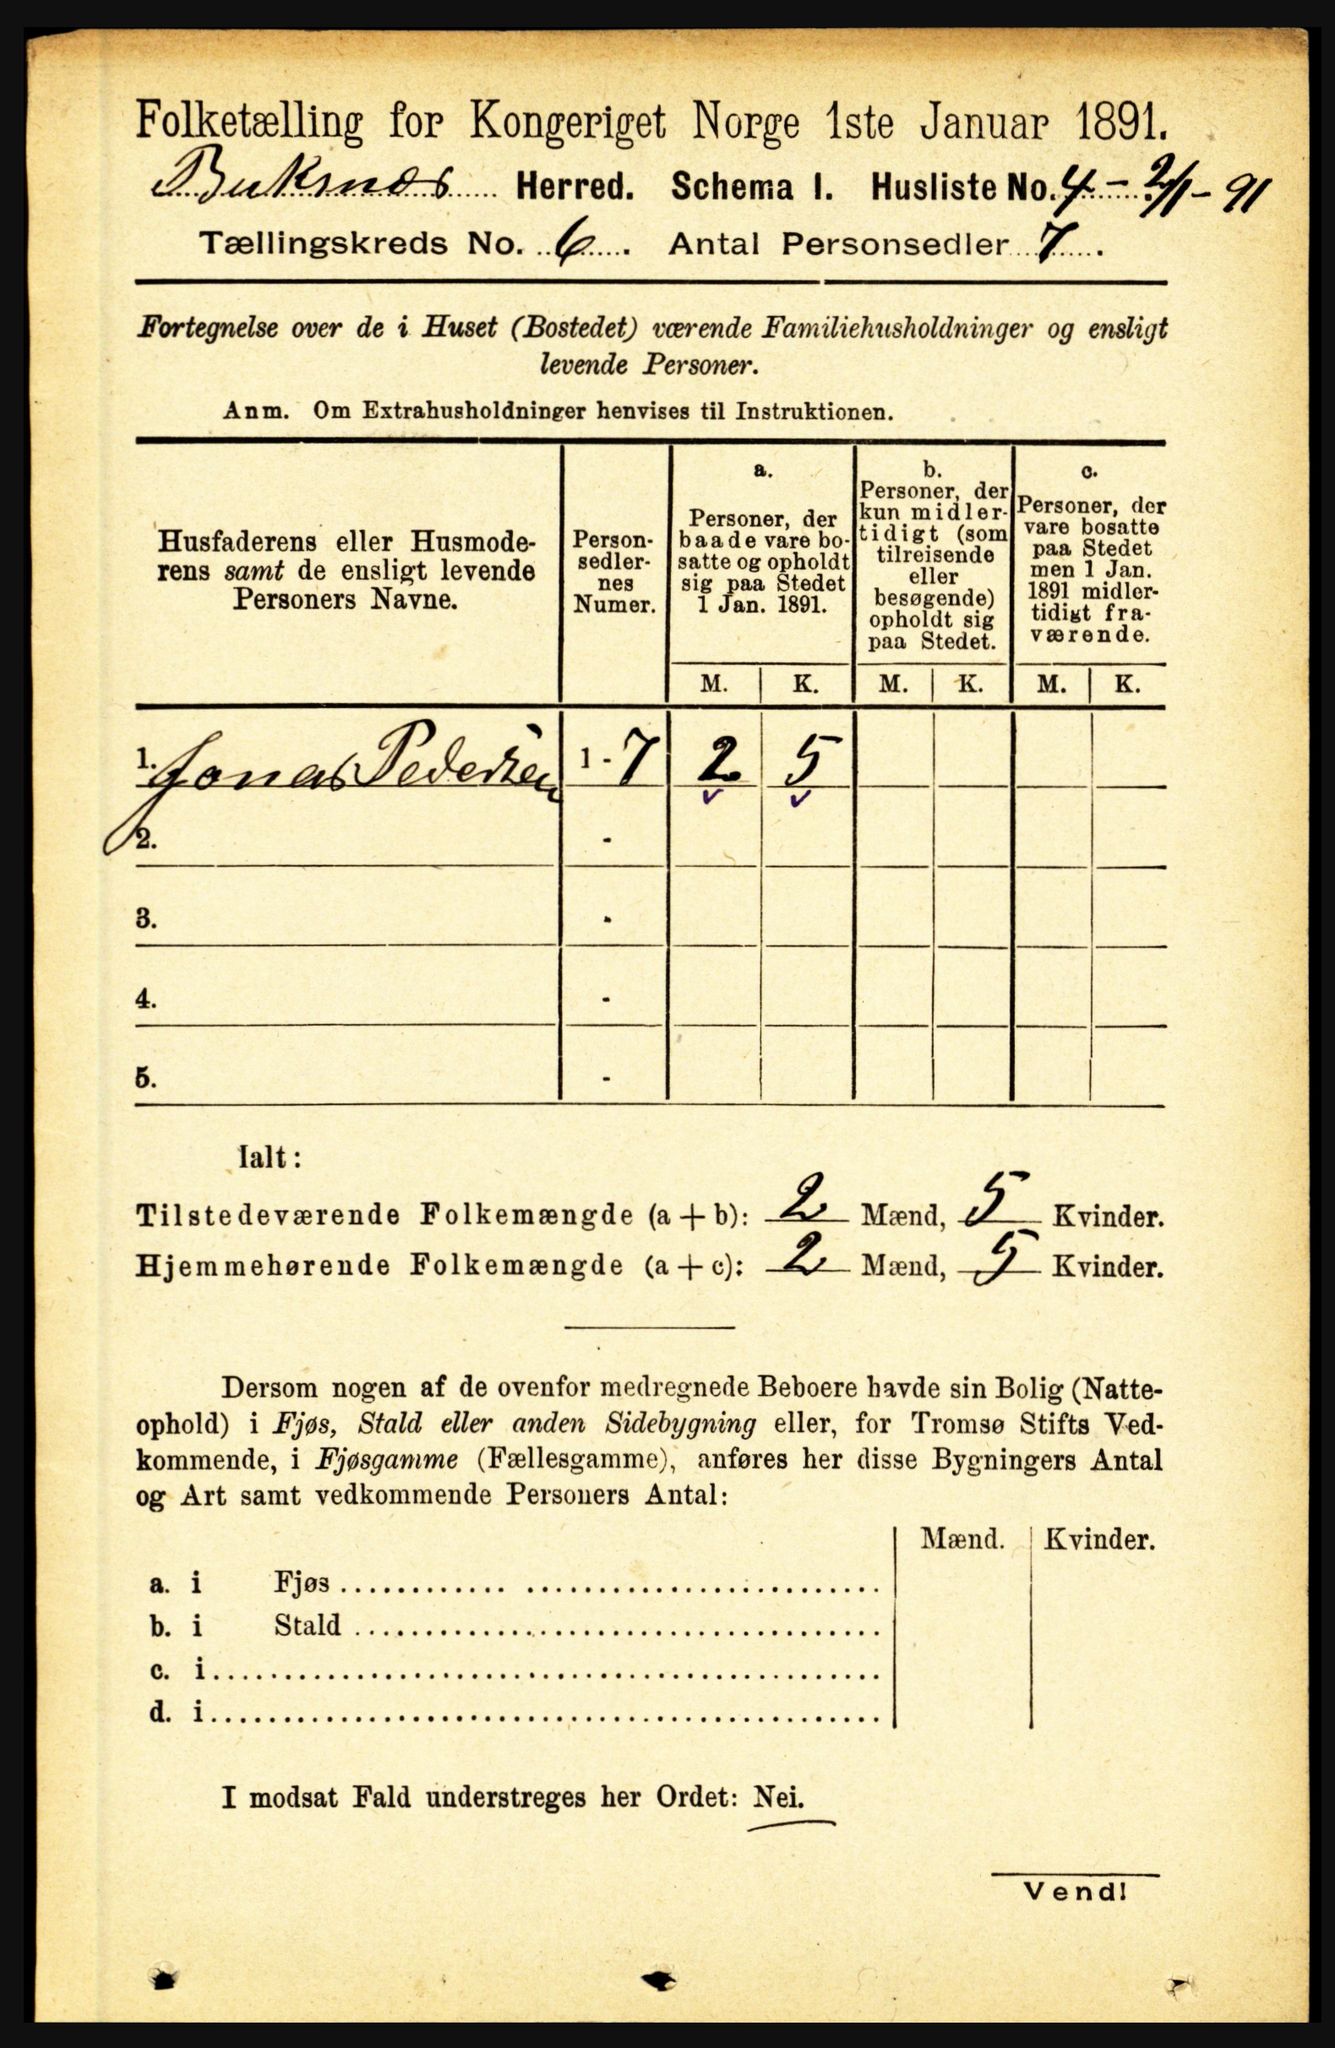 Folketælling for Kongeriget Norge 1ste Januar 1891.
Buksnæs Herred. Schema 1. Husliste No. 4 - 2/1 - 91
Tællingskreds No. 6. Antal Personsedler 7.
Fortegnelse over de i Huset (Bostedet) værende Familiehusholdninger og ensligt
levende Personer.
Anm. Om Extrahusholdninger henvises til Instruktionen.
Husfaderens eller Husmode-
rens samt de ensligt levende
Personers Navne.
Person-
sedler-
nes
Numer.
a.
Personer, der
baade vare bo-
satte og opholdt
sig paa Stedet
1 Jan. 1891.
b.
Personer, der
kun midler-
tidigt (som
tilreisende
eller
besøgende)
opholdt sig
paa Stedet.
c.
Personer, der
vare bosatte
paa Stedet
men 1 Jan.
1891 midler-
tidigt fra-
værende.
M. K. M. K. M. K.
1. Jonas Pedersen 1 - 7 2 5
2. -
3. -
4. -
5. -
Ialt:
Tilstedeværende Folkemængde (a + b): 2 Mænd, 5 Kvinder.
Hjemmehørende Folkemængde (a + c): 2 Mænd, 5 Kvinder.
Dersom nogen af de ovenfor medregnede Beboere havde sin Bolig (Natte-
ophold) i Fjøs, Stald eller anden Sidebygning eller, for Tromsø Stifts Ved-
kommende, i Fjøsgamme (Fællesgamme), anføres her disse Bygningers Antal
og Art samt vedkommende Personers Antal:
Mænd. Kvinder.
a. i Fjøs
b. i Stald
c. i
d. i
I modsat Fald understreges her Ordet: Nei.
Vend!